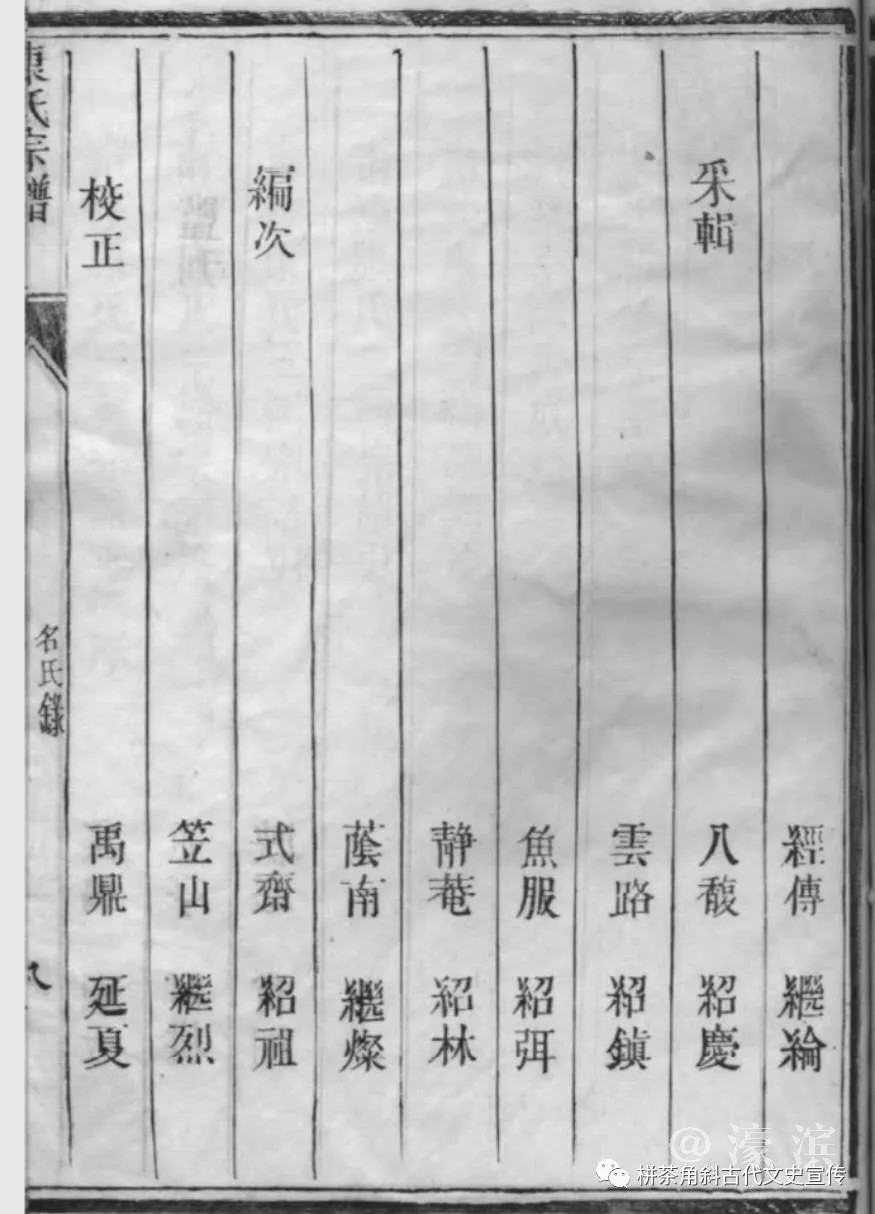 經傳 繼綸
采輯 八馥 紹慶
雲路 紹鎮
魚服 紹弭
靜菴 紹林
蔭南 繼燦
編次 式齋 紹祖
笠山 繼烈
校正 禹鼎 延夏
氏宗譜 名氏錄 八
@濠滨
栟茶角斜古代文史宣传